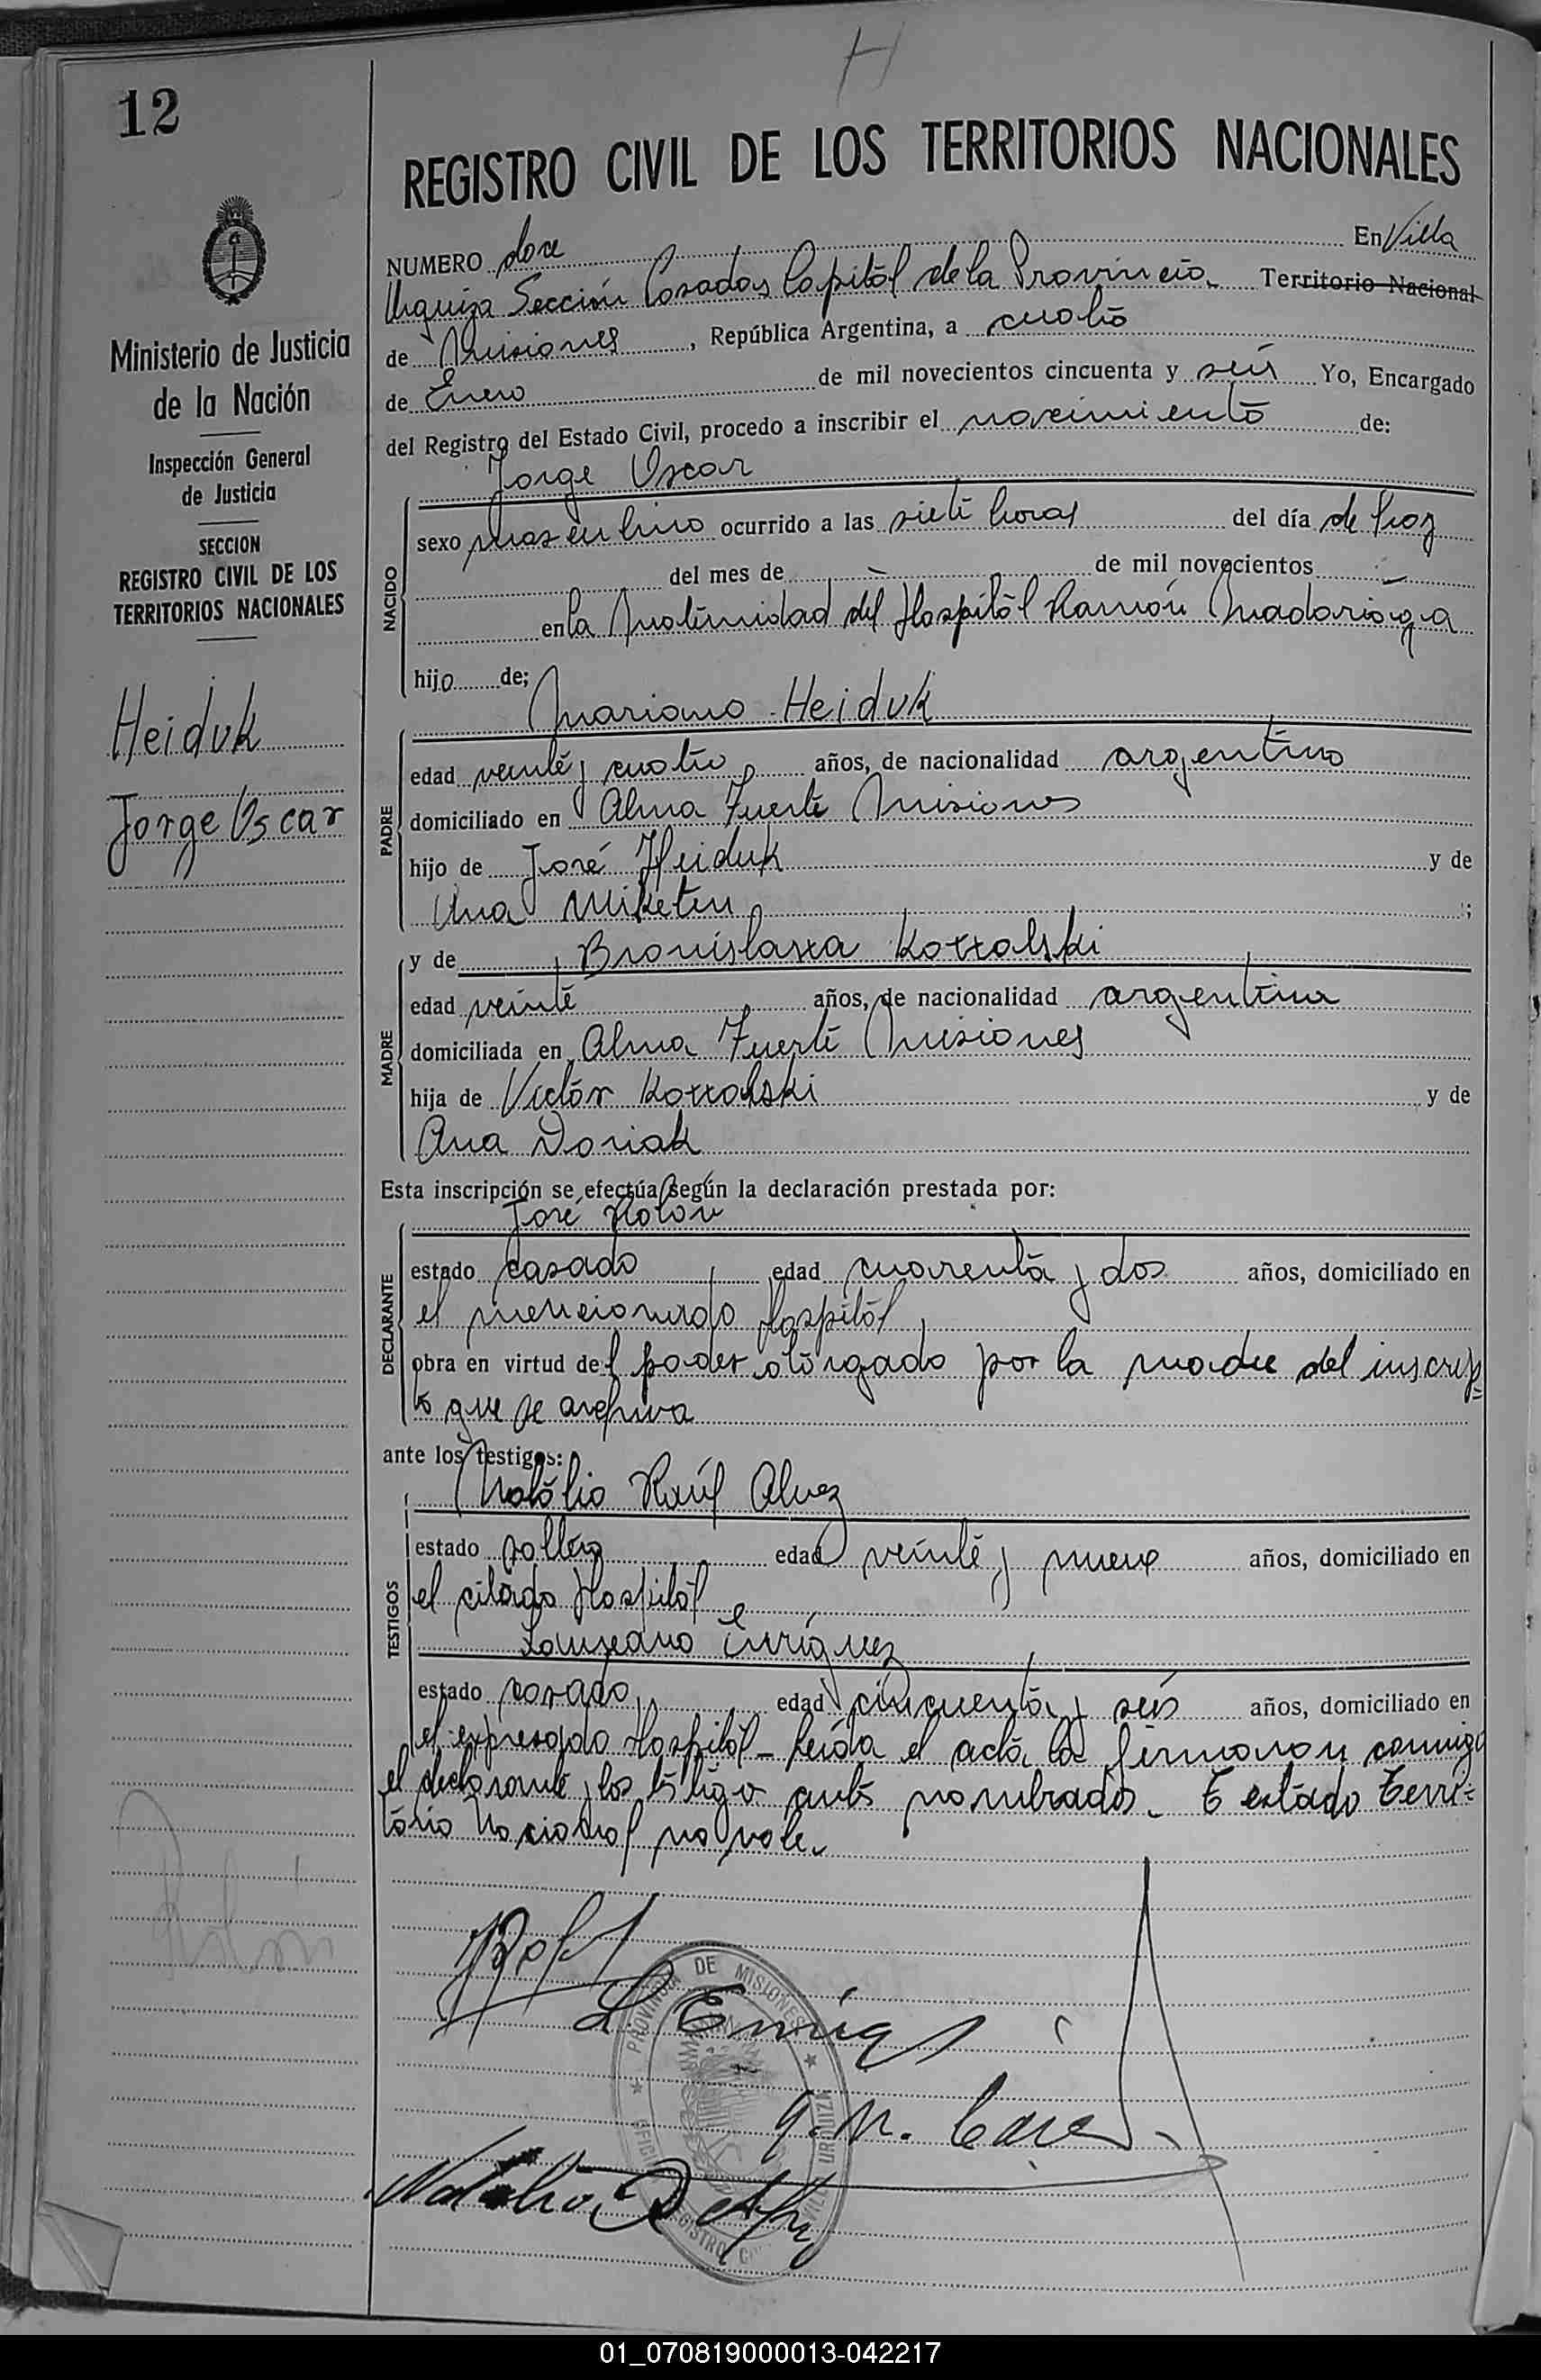 H
12
REGISTRO CIVIL DE LOS TERRITORIOS NACIONALES
NUMERO doce En Villa
Urquiza Sección Posadas Capital de la Provincia. Territorio Nacional
de Misiones, República Argentina, a cuatro
de Enero de mil novecientos cincuenta y seis Yo, Encargado
del Registro del Estado Civil, procedo a inscribir el nacimiento de:
Jorge Oscar
Ministerio de Justicia
de la Nación
Inspección General
de Justicia
SECCION
REGISTRO CIVIL DE LOS
TERRITORIOS NACIONALES
Heiduk
Jorge Oscar
NACIDO
sexo masculino ocurrido a las siete horas del día de hoy
del mes de de mil novecientos
en la Maternidad del Hospital Ramón Madariaga
hijo de;
Mariano Heiduk
PADRE
edad veinte y cuatro años, de nacionalidad argentino
domiciliado en Alma Fuerte Misiones
hijo de José Heiduk y de
Ana Miketen ;
MADRE
y de Bronislaxa Koxxalski
edad veinte años, de nacionalidad argentina
domiciliada en Alma Fuerte Misiones
hija de Victor Koxxalski y de
Ana Doniak
Esta inscripción se efectúa según la declaración prestada por:
José
DECLARANTE
estado casado edad cuarenta y dos años, domiciliado en
el mencionado Hospital
obra en virtud del poder otorgado por la madre del inscrip=
to que se archiva
ante los testigos:
Natalio Raúl Alvez
TESTIGOS
estado soltero edad veinte y nueve años, domiciliado en
el citado Hospital e
Laureano Enríquez
estado casado edad cincuenta y seis años, domiciliado en
el expresado Hospital - Leída el acta la firmaron conmigo
el declarante y los testigos antes nombrados. Testado Terri=
torio Nacional no vale.
L Enriq
PROVINCIA DE MISIONES
OFICINA REGISTRO CIVIL VILLA URQUIZA
Natalio R Alv
01_070819000013-042217